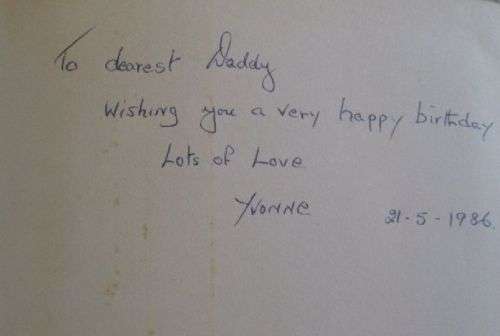 To dearest Daddy
Wishing you a very happy birthday
Lots of Love
Yvonne 21-5-1986.